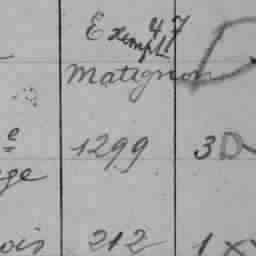 Exempt 47
Matignon D
e 1299 3D
ge
ois 212 1x